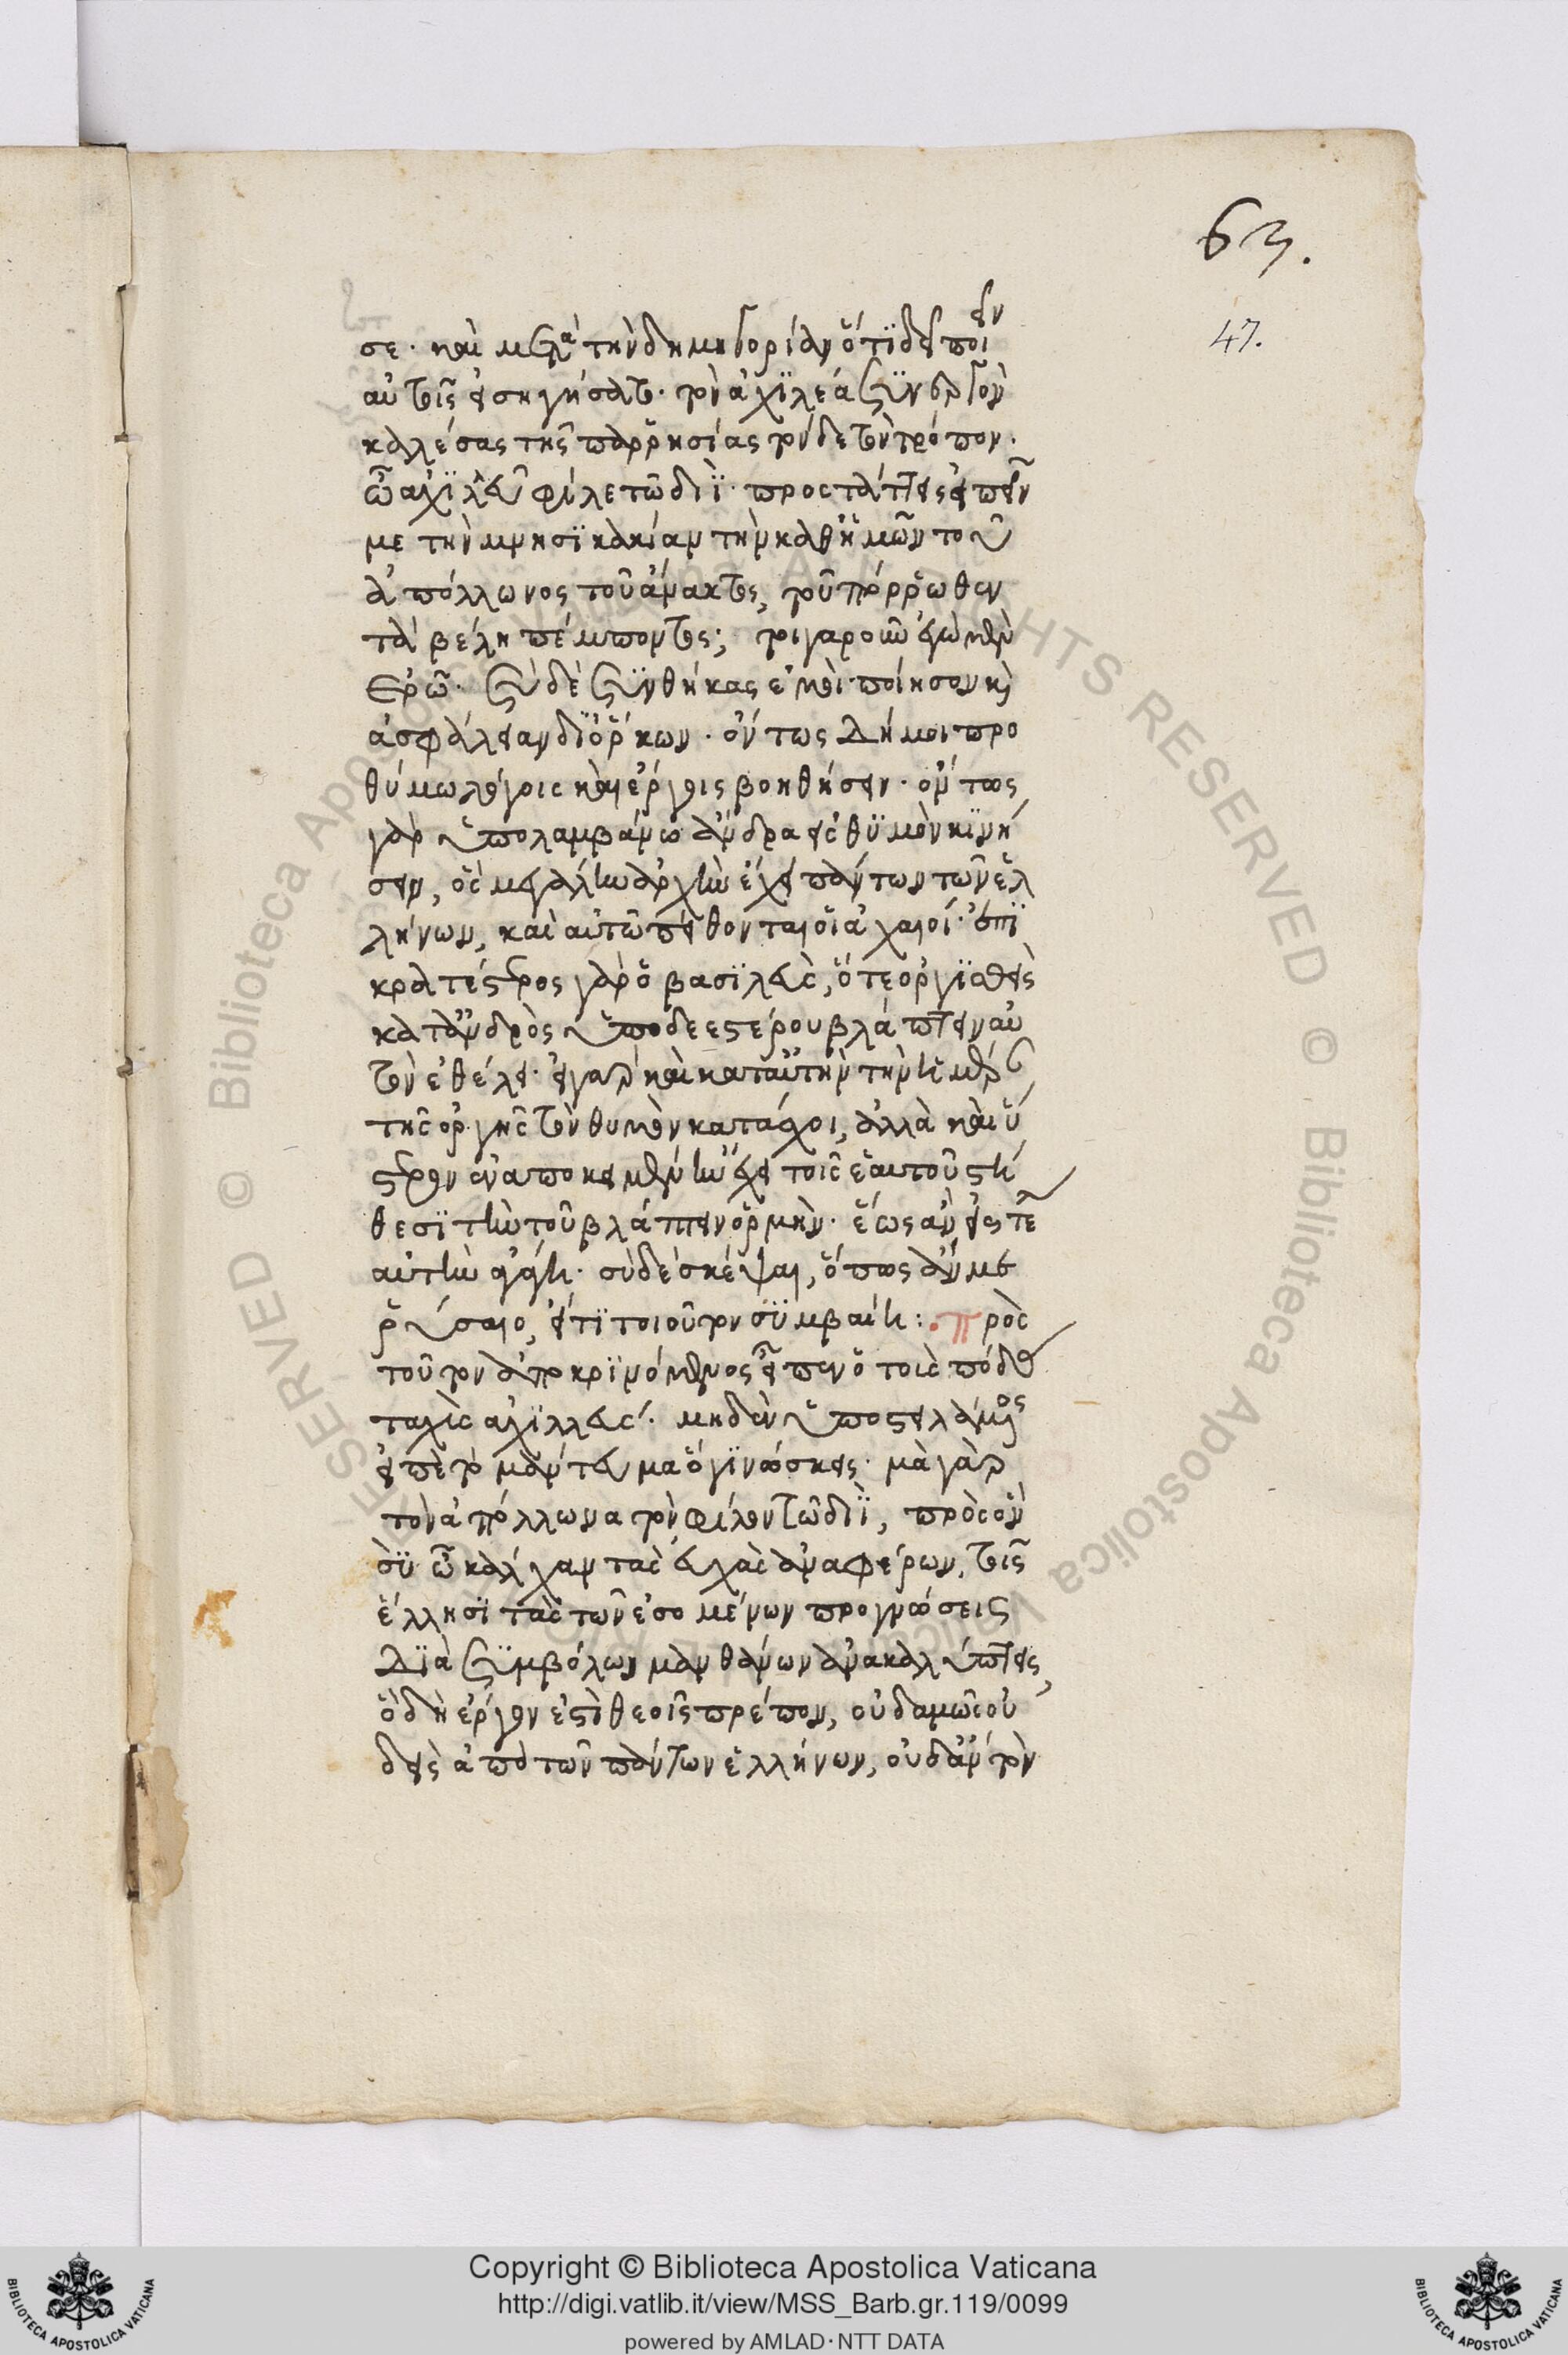 63.
47.
σε· καὶ μετὰ τὴν δημηγορίαν ὅτι δεῖ ποιεῖν
αὐτοῖς εἰσηγήσατο· τὸν ἀχιλέα συνεργὸν
καλέσας τῆς παρρησίας τόνδε τὸν τρόπον·
ὦ ἀχιλεῦ φίλε τῶ διΐ· προστάττεις εἰπεῖν
με τὴν μνησικακίαν τὴν καθημῶν τοῦ
ἀπόλλωνος τοῦ ἄνακτος, τοῦ πόρρωθεν
τὰ βέλη πέμποντος; τοιγαροῦν ἐγὼ μὲν
ἐρῶ· σὺ δὲ συνθήκας ἐμοὶ ποίησον καὶ
ἀσφάλειαν δι' ὅρκων· ὄντως δή μοι προ
θύμω λόγοις καὶ ἔργοις βοηθήσειν· ὄντως
γὰρ ὑπολαμβάνω ἄνδρα εἰς θυμὸν κινή
σειν, ὃς μεγάλην ἀρχὴν ἔχει πάντων τῶν ἑλ
λήνων, καὶ αὐτῶ πείθονται οἱ ἀχαιοί· ἐπι
κρατέστερος γὰρ ὁ βασιλεὺς, ὅτε ὀργισθεὶς
κατ' ἀνδρὸς ὑποδεεστέρου βλάπτειν αὐ
τὸν ἐθέλει· εἰ γὰρ καὶ κατ' αὐτὴν τὴν ἡμέραν
τῆς ὀργῆς τὸν θυμὸν κατάσχοι, ἀλλὰ καὶ ὕ
στερον ἐναποκειμένην ἔχει τοῖς ἑαυτοῦ στή
θεσι τὴν τοῦ βλάπτειν ὁρμὴν· ἕως ἂν εἰς τέλος
αὐτὴν ἀγάγη· σὺ δὲ σκέψαι, ὅπως ἄν με
ῥύσαιο, εἴ τι τοιοῦτον συμβαίη: πρὸς
τοῦτον ἀποκρινόμενος εἶπεν ὁ τοῖς πόδας
ταχὺς ἀχιλλεύς· μηδὲν ὑποστειλάμενος
εἰπὲ τὸ μάντευμα ὃ γινώσκεις· μὰ γὰρ
τὸν ἀπόλλωνα τὸν φίλον τῶ διΐ, πρὸς ὃν
σὺ ὦ κάλχαν τὰς εὐχὰς ἀναφέρων, τοῖς
ἕλλησι τὰς τῶν ἐσομένων προγνώσεις
διὰ συμβόλων μανθάνων ἀνακαλύπτεις,
ὃ δὴ ἔργον ἐστὶ θεοῖς πρέπον, οὐδαμῶς οὐ
δεὶς ἀπὸ τῶν πάντων ἑλλήνων, οὐδ' ἂν τὸν
© Biblioteca Apostolica Vaticana ALL RIGHTS RESERVED
Copyright © Biblioteca Apostolica Vaticana
http://digi.vatlib.it/view/MSS_Barb.gr.119/0099
powered by AMLAD · NTT DATA
BIBLIOTECA APOSTOLICA VATICANA
BIBLIOTECA APOSTOLICA VATICANA